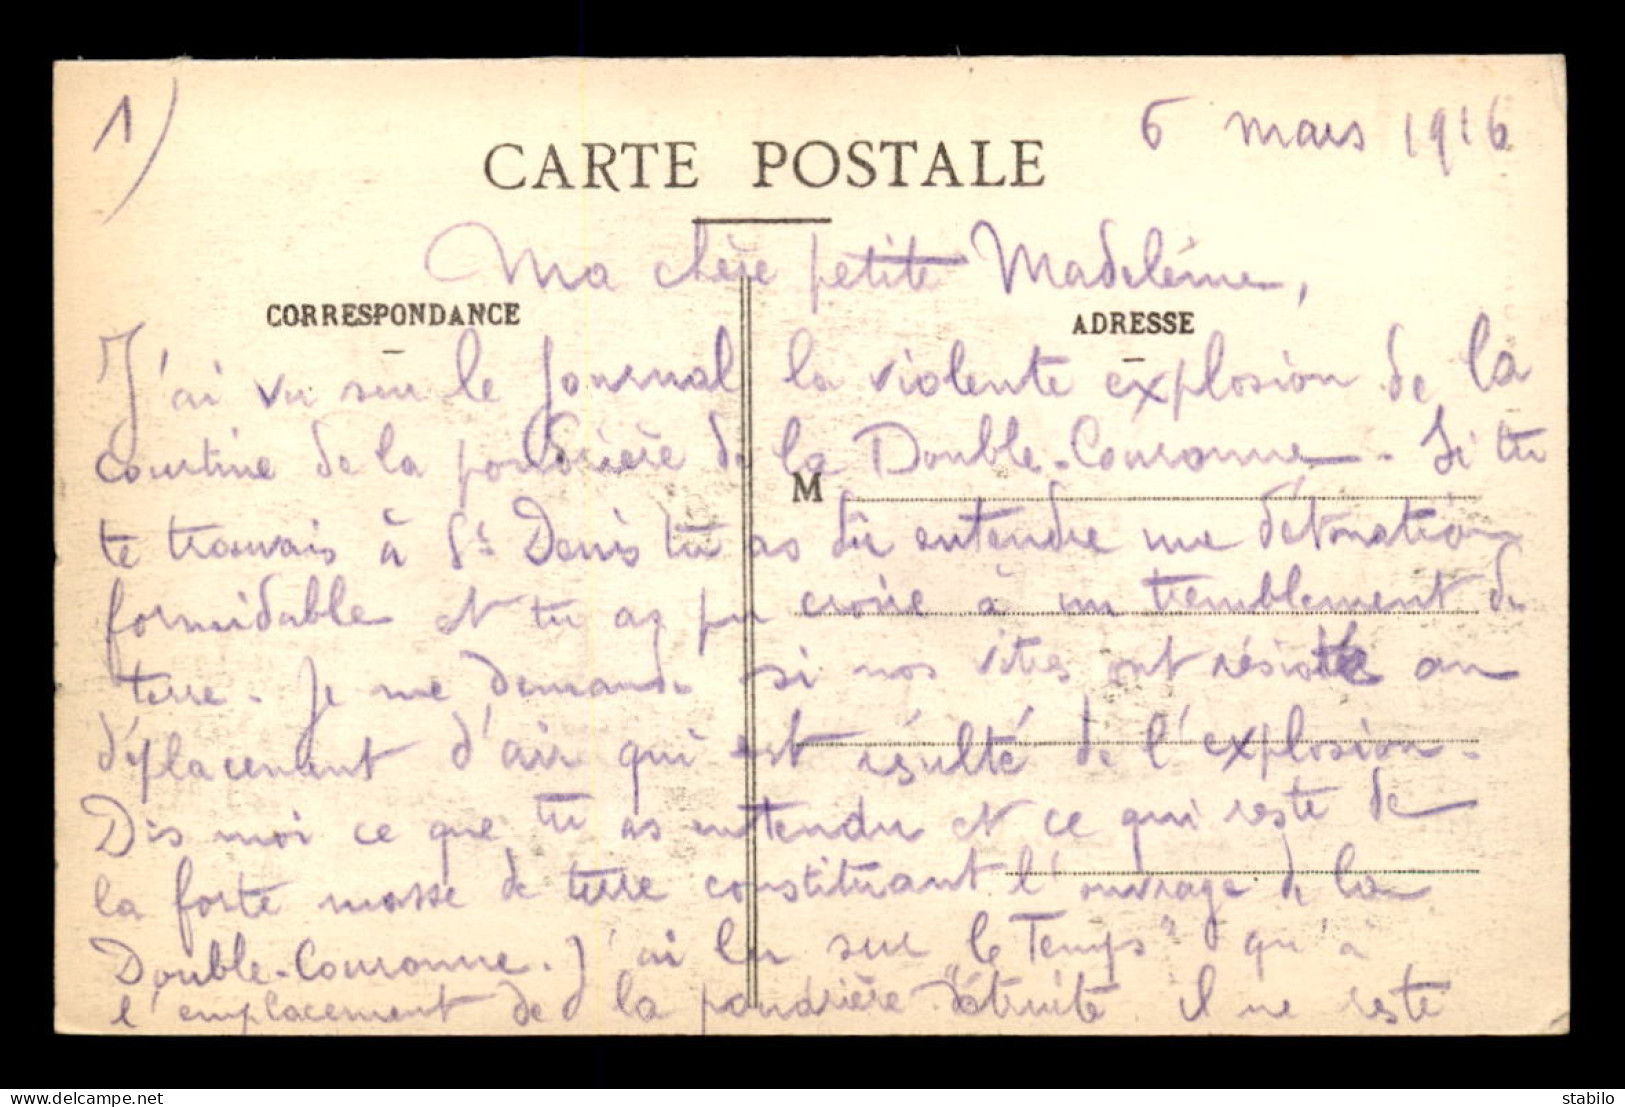 1)
6 mars 1916
CARTE POSTALE
Ma chère petite Madeleine,
CORRESPONDANCE
ADRESSE
J'ai vu sur le Journal la violente explosion de la
courtine de la poudrière de la Double-Couronne. Si tu
M
te trouvais à St Denis tu as dû entendre une détonation
formidable et tu as pu croire à un tremblement de
terre. Je me demande si nos vitres ont résisté au
déplacement d'air qui est résulté de l'explosion.
Dis moi ce que tu as entendu et ce qui reste de
la forte masse de terre constituant l'ouvrage de la
Double-Couronne. J'ai lu sur "le Temps" qu'à
l'emplacement de la poudrière détruite il ne reste
delcampe.net
stabilo